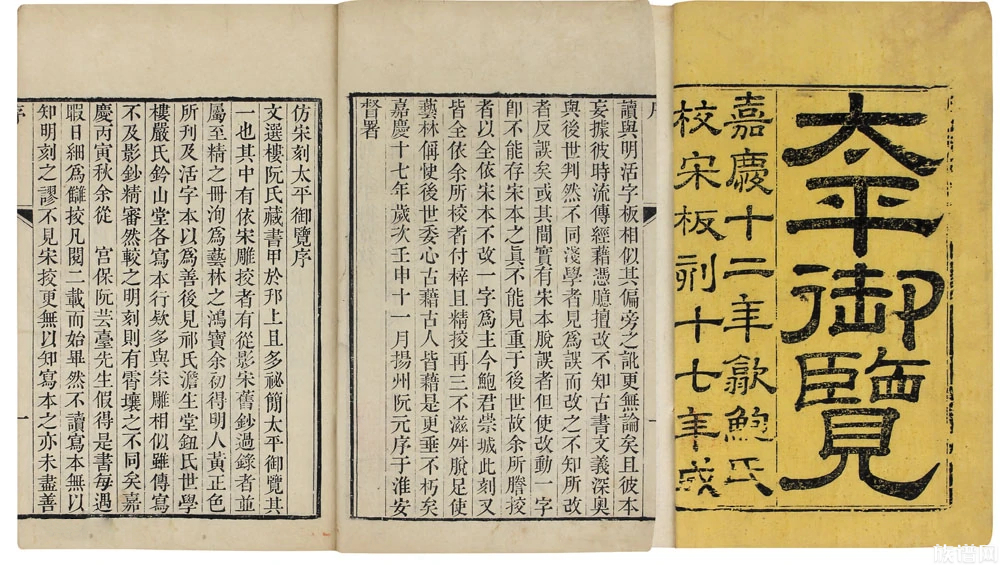 太平御覽
嘉慶十二年歙鮑氏
校宋板刻十七年成
序
讀與明活字板相似其偏旁之訛更無論矣且彼本
妄據彼時流傳經藉憑臆擅改不知古書文義深奧
與後世判然不同淺學者見爲誤而改之不知所改
者反誤矣或其間實有宋本脫誤者但使改動一字
卽不能存宋本之眞不能見重于後世故余所謄挍
者以全依宋本不改一字爲主今鮑君崇城此刻又
皆全依余所挍者付梓且精挍再三不滋舛脫足使
藝林偁快後世委心古藉古人皆藉是更垂不朽矣
嘉慶十七年歲次壬申十一月揚州阮元序于淮安
督署
一
仿宋刻太平御覽序
文選樓阮氏藏書甲於邗上且多祕簡太平御覽其
一也其中有依宋雕挍者有從影宋舊鈔過錄者並
屬至精之冊洵爲藝林之鴻寶余初得明人黃正色
所刋及活字本以爲善後見祁氏澹生堂鈕氏世學
樓嚴氏鈐山堂各寫本行欵多與宋雕相似雖傳寫
不及影鈔精審然較之明刻則有霄壤之不同矣嘉
慶丙寅秋余從 宮保阮芸臺先生假得是書每遇
暇日細爲讎挍凡閱二載而始畢然不讀寫本無以
知明刻之謬不見宋挍更無以知寫本之亦未盡善
序
一
族谱网